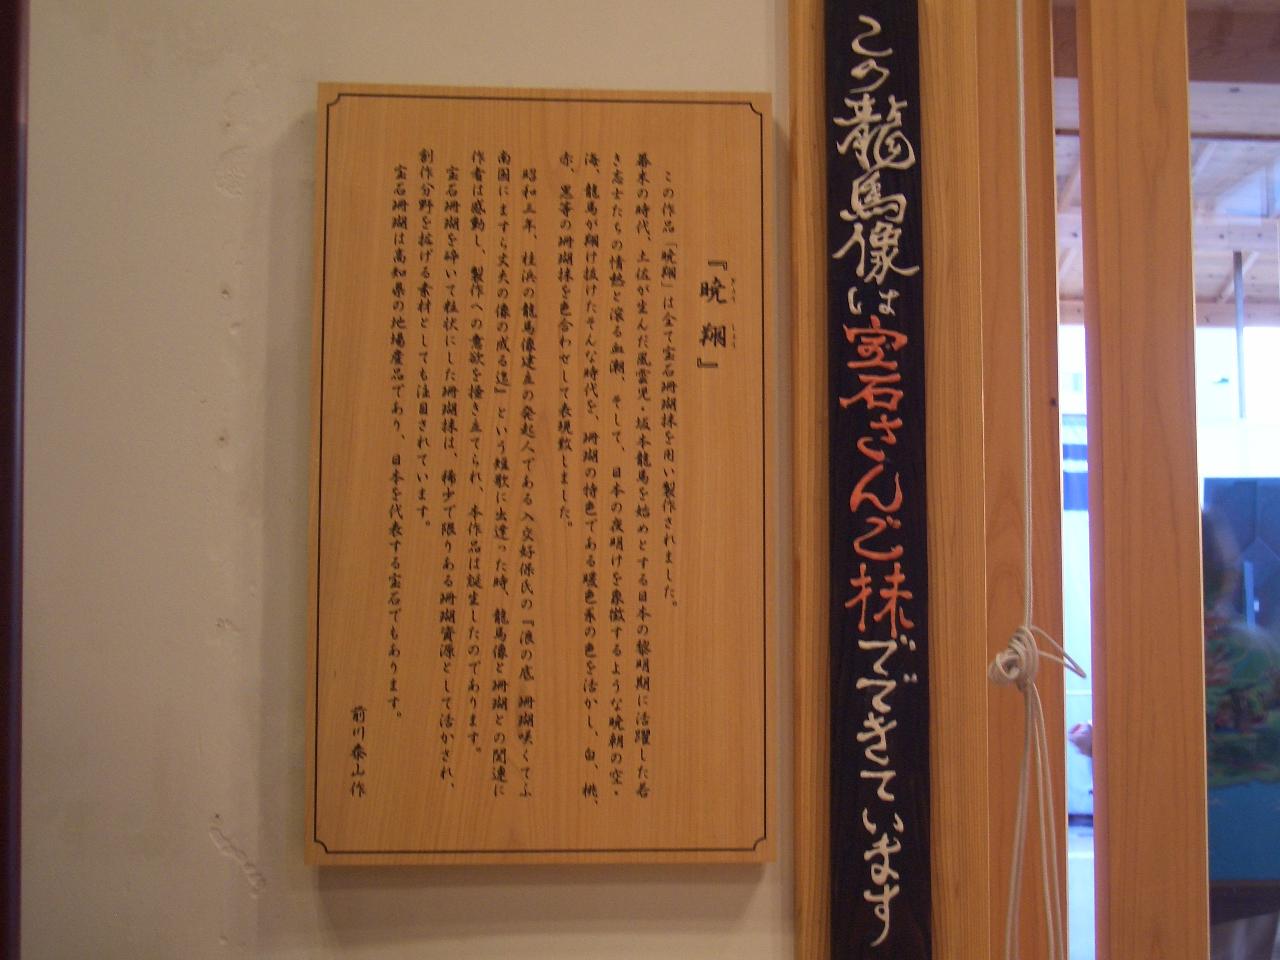 この龍馬像は宝石さんご抹でできています
『暁翔』
ぎょうしょう
この作品「暁翔」は全て宝石珊瑚抹を用い製作されました。
幕末の時代、土佐が生んだ風雲児・坂本龍馬を始めとする日本の黎明期に活躍した若
き志士たちの情熱と滾る血潮、そして、日本の夜明けを象徴するような暁朝の空・
海、龍馬が翔け抜けたそんな時代を、珊瑚の特色である暖色系の色を活かし、白、桃、
赤、黒等の珊瑚抹を色合わせして表現致しました。
昭和三年、桂浜の龍馬像建立の発起人である入交好保氏の『浪の底 珊瑚咲くてふ
南国にますら丈夫の像の成る迄』という短歌に出逢った時、龍馬像と珊瑚との関連に
作者は感動し、製作への意欲を掻き立てられ、本作品は誕生したのであります。
宝石珊瑚を砕いて粒状にした珊瑚抹は、稀少で限りある珊瑚資源として活かされ、
創作分野を拡げる素材としても注目されています。
宝石珊瑚は高知県の地場産品であり、日本を代表する宝石でもあります。
前川泰山作